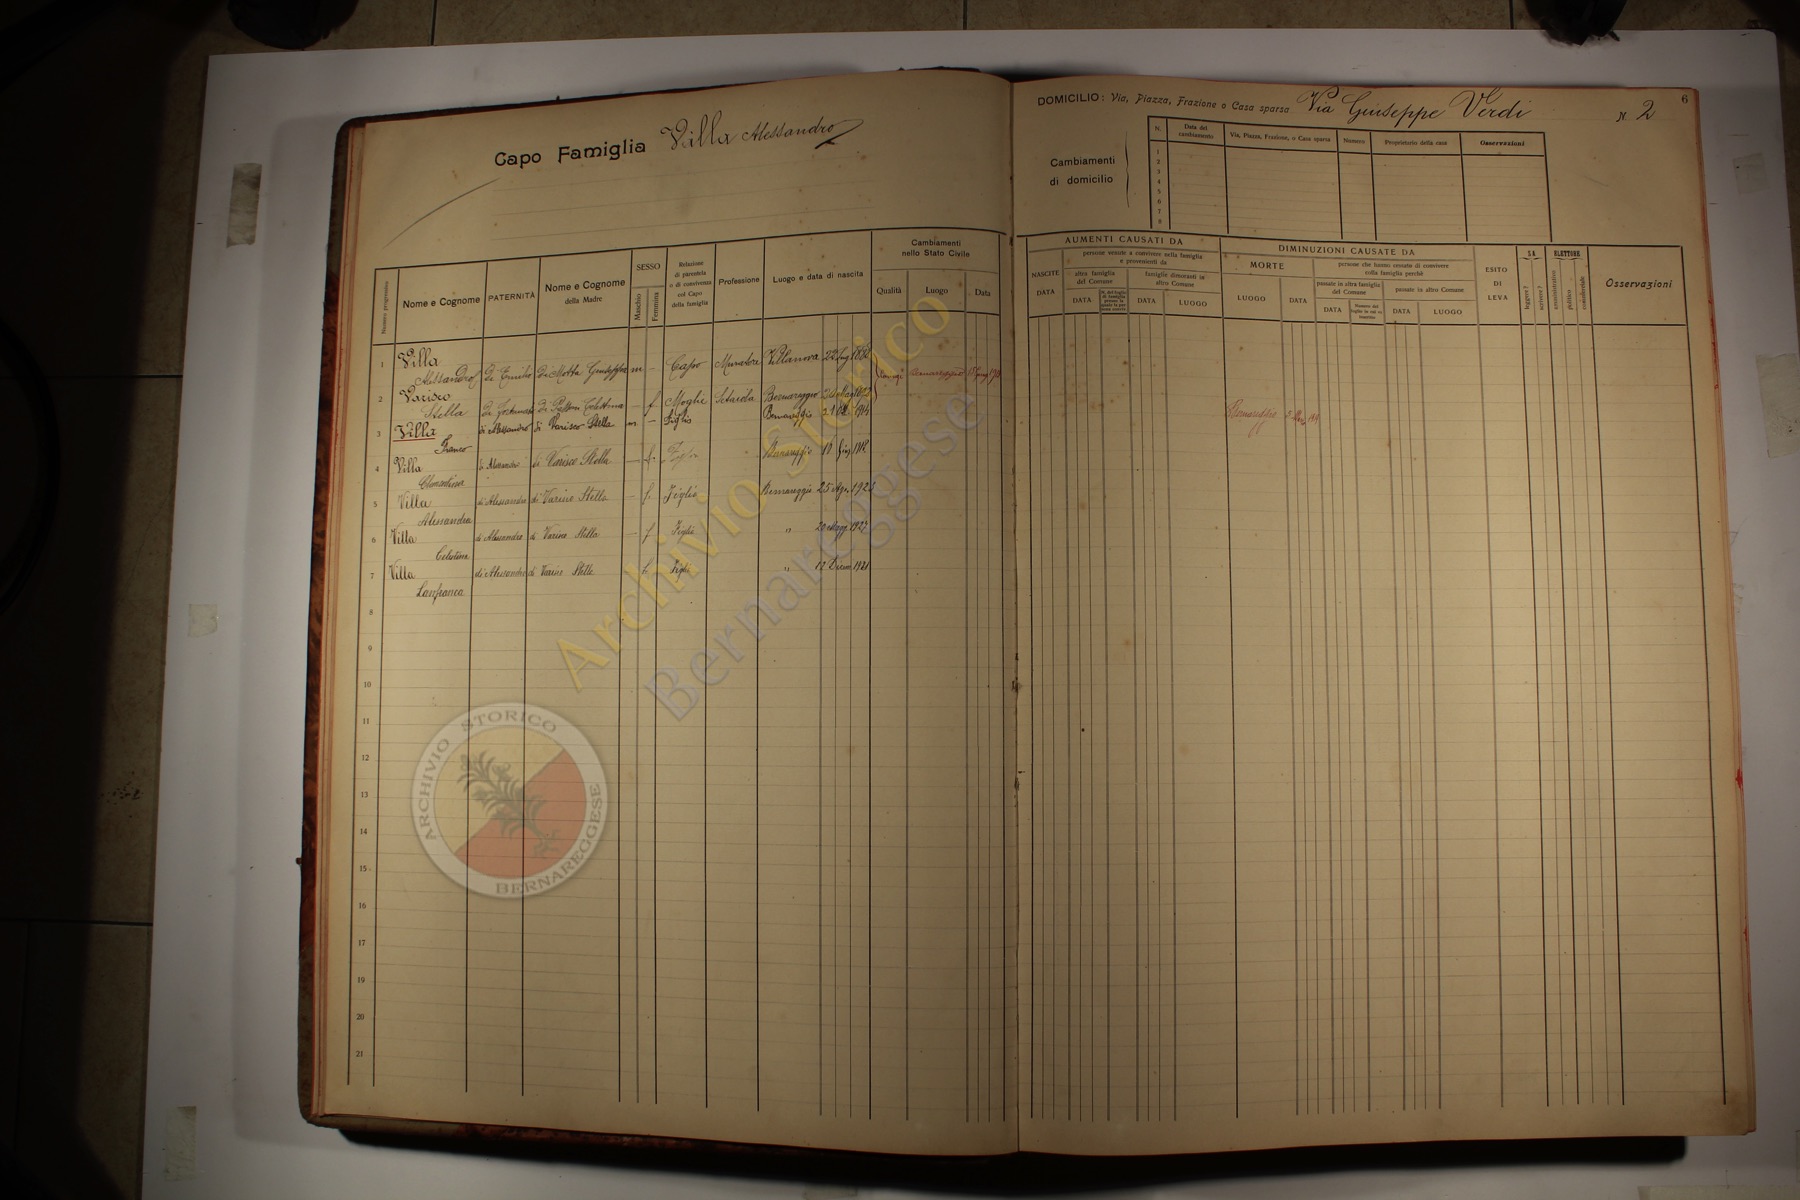 Capo Famiglia Villa Alessandro
DOMICILIO: Via, Piazza, Frazione o Casa sparsa Via Giuseppe Verdi N. 2
6
Cambiamenti di domicilio
N. Data del cambiamento Via, Piazza, Frazione, o Casa sparsa Numero Proprietario della casa Osservazioni
1
2
3
4
5
6
7
8
Numero progressivo
Nome e Cognome
PATERNITÀ
Nome e Cognome della Madre
SESSO
Maschio
Femmina
Relazione di parentela o di convivenza col Capo della famiglia
Professione
Luogo e data di nascita
Cambiamenti nello Stato Civile
Qualità Luogo Data
AUMENTI CAUSATI DA
NASCITE
DATA
persone venute a convivere nella famiglia e provenienti da
altra famiglia del Comune
DATA
famiglie dimoranti in altro Comune
DATA LUOGO
DIMINUZIONI CAUSATE DA
MORTE
LUOGO DATA
persone che hanno cessato di convivere colla famiglia perchè
passate in altra famiglia del Comune
DATA
passate in altro Comune
DATA LUOGO
ESITO DI LEVA
SA
leggere?
scrivere?
ELETTORE
amministrativo
politico
commerciale
Osservazioni
1 Villa Alessandro di Emilio di Motta Giuseppa m – Capo Muratore Villanova 22 1882
Bernareggio
2 Varisco Stella di Fortunato di Celestina – f Moglie Setaiola Bernareggio
3 Villa Franco di Alessandro di Varisco Stella m – Figlio Bernareggio 1914
Bernareggio
4 Villa Clementina di Alessandro di Varisco Stella – f. Bernareggio
5 Villa Alessandra di Alessandro di Varisco Stella – f. Figlia Bernareggio 25 Ago. 192
6 Villa Celestina di Alessandro di Varisco Stella – f. Figlia " 20 Magg. 1927
7 Villa Lanfranca di Alessandro di Varisco Stella f. Figlia " 12 Dicem 1921
8
9
10
11
12
13
14
15
16
17
18
19
20
21
Archivio Storico
Bernareggese
ARCHIVIO STORICO
BERNAREGGESE